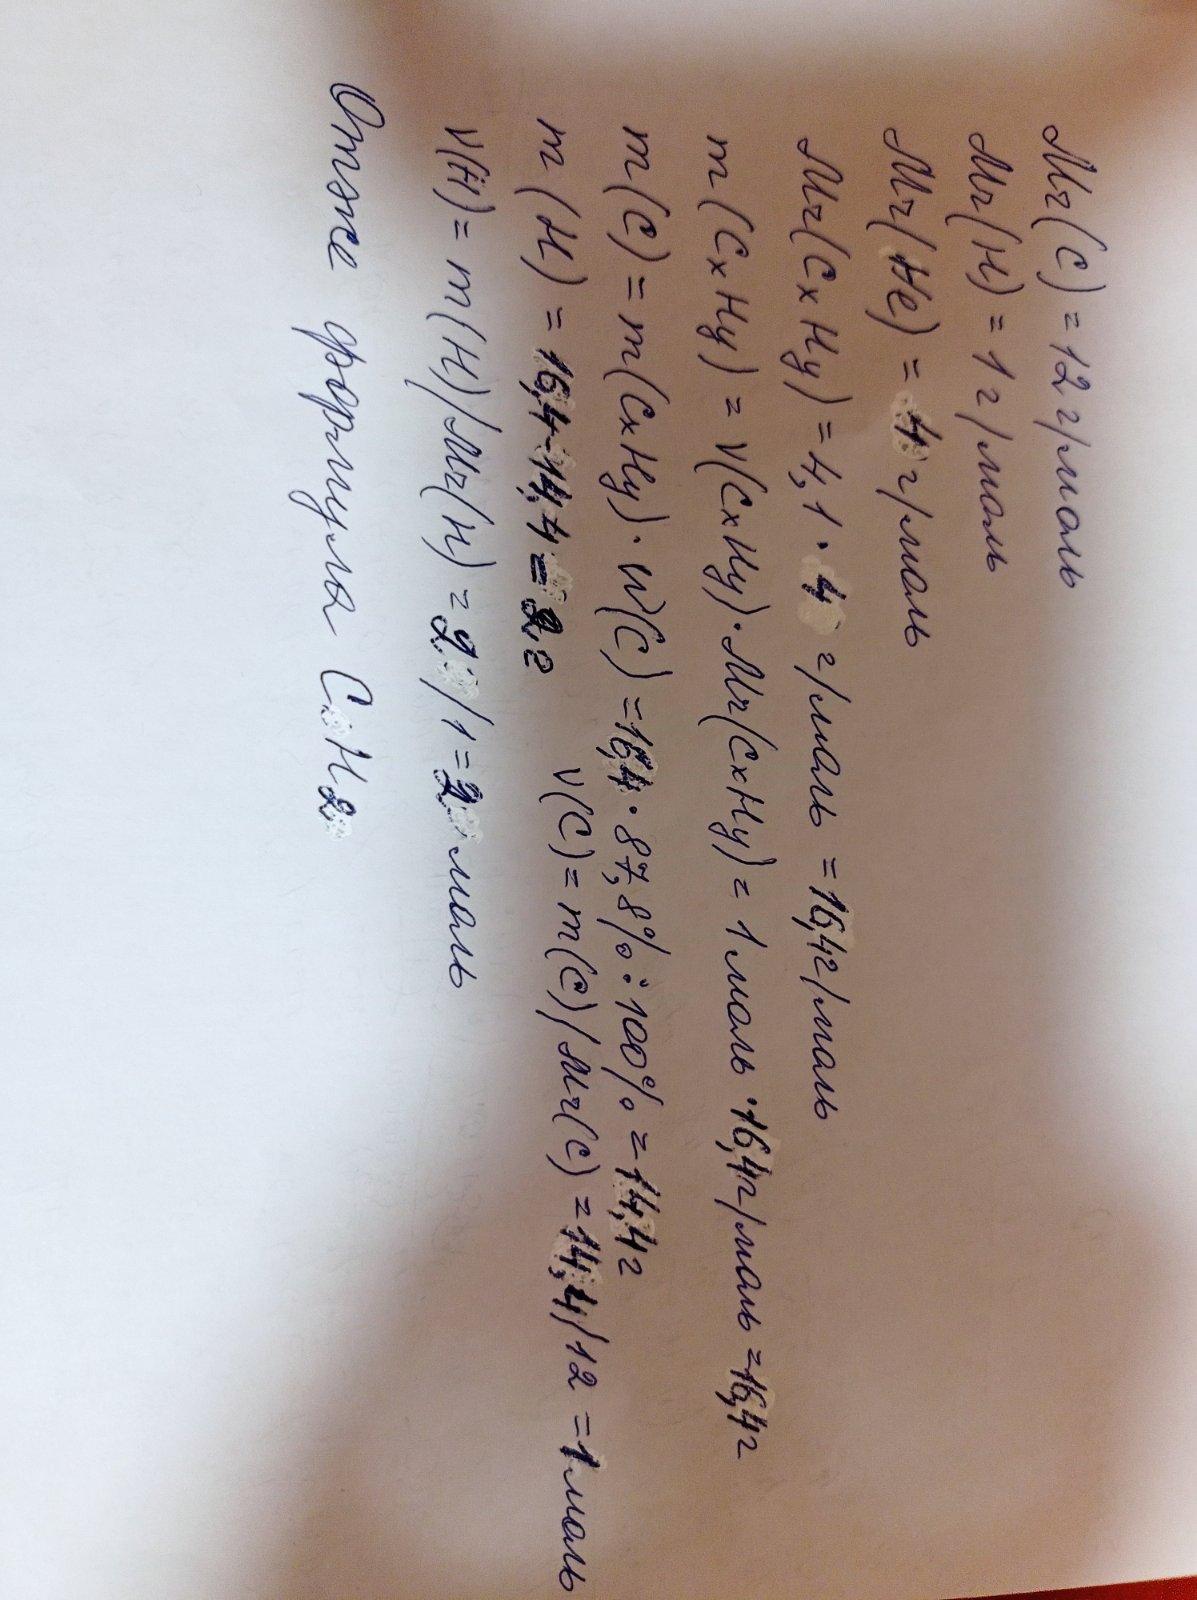 Mr(C) = 12 г/моль
Mr(H) = 1 г/моль
Mr(He) = 4 г/моль
Mr(CxHy) = 4,1 · 4 г/моль = 16,4 г/моль
m(CxHy) = ν(CxHy) · Mr(CxHy) = 1 моль · 16,4 г/моль = 16,4 г
m(C) = m(CxHy) · W(C) = 16,4 · 87,8% : 100% = 14,4 г
m(H) = 16,4 - 14,4 = 2 г ν(C) = m(C)/Mr(C) = 14,4/12 = 1 моль
ν(H) = m(H)/Mr(H) = 2/1 = 2 моль
Отже формула CH2